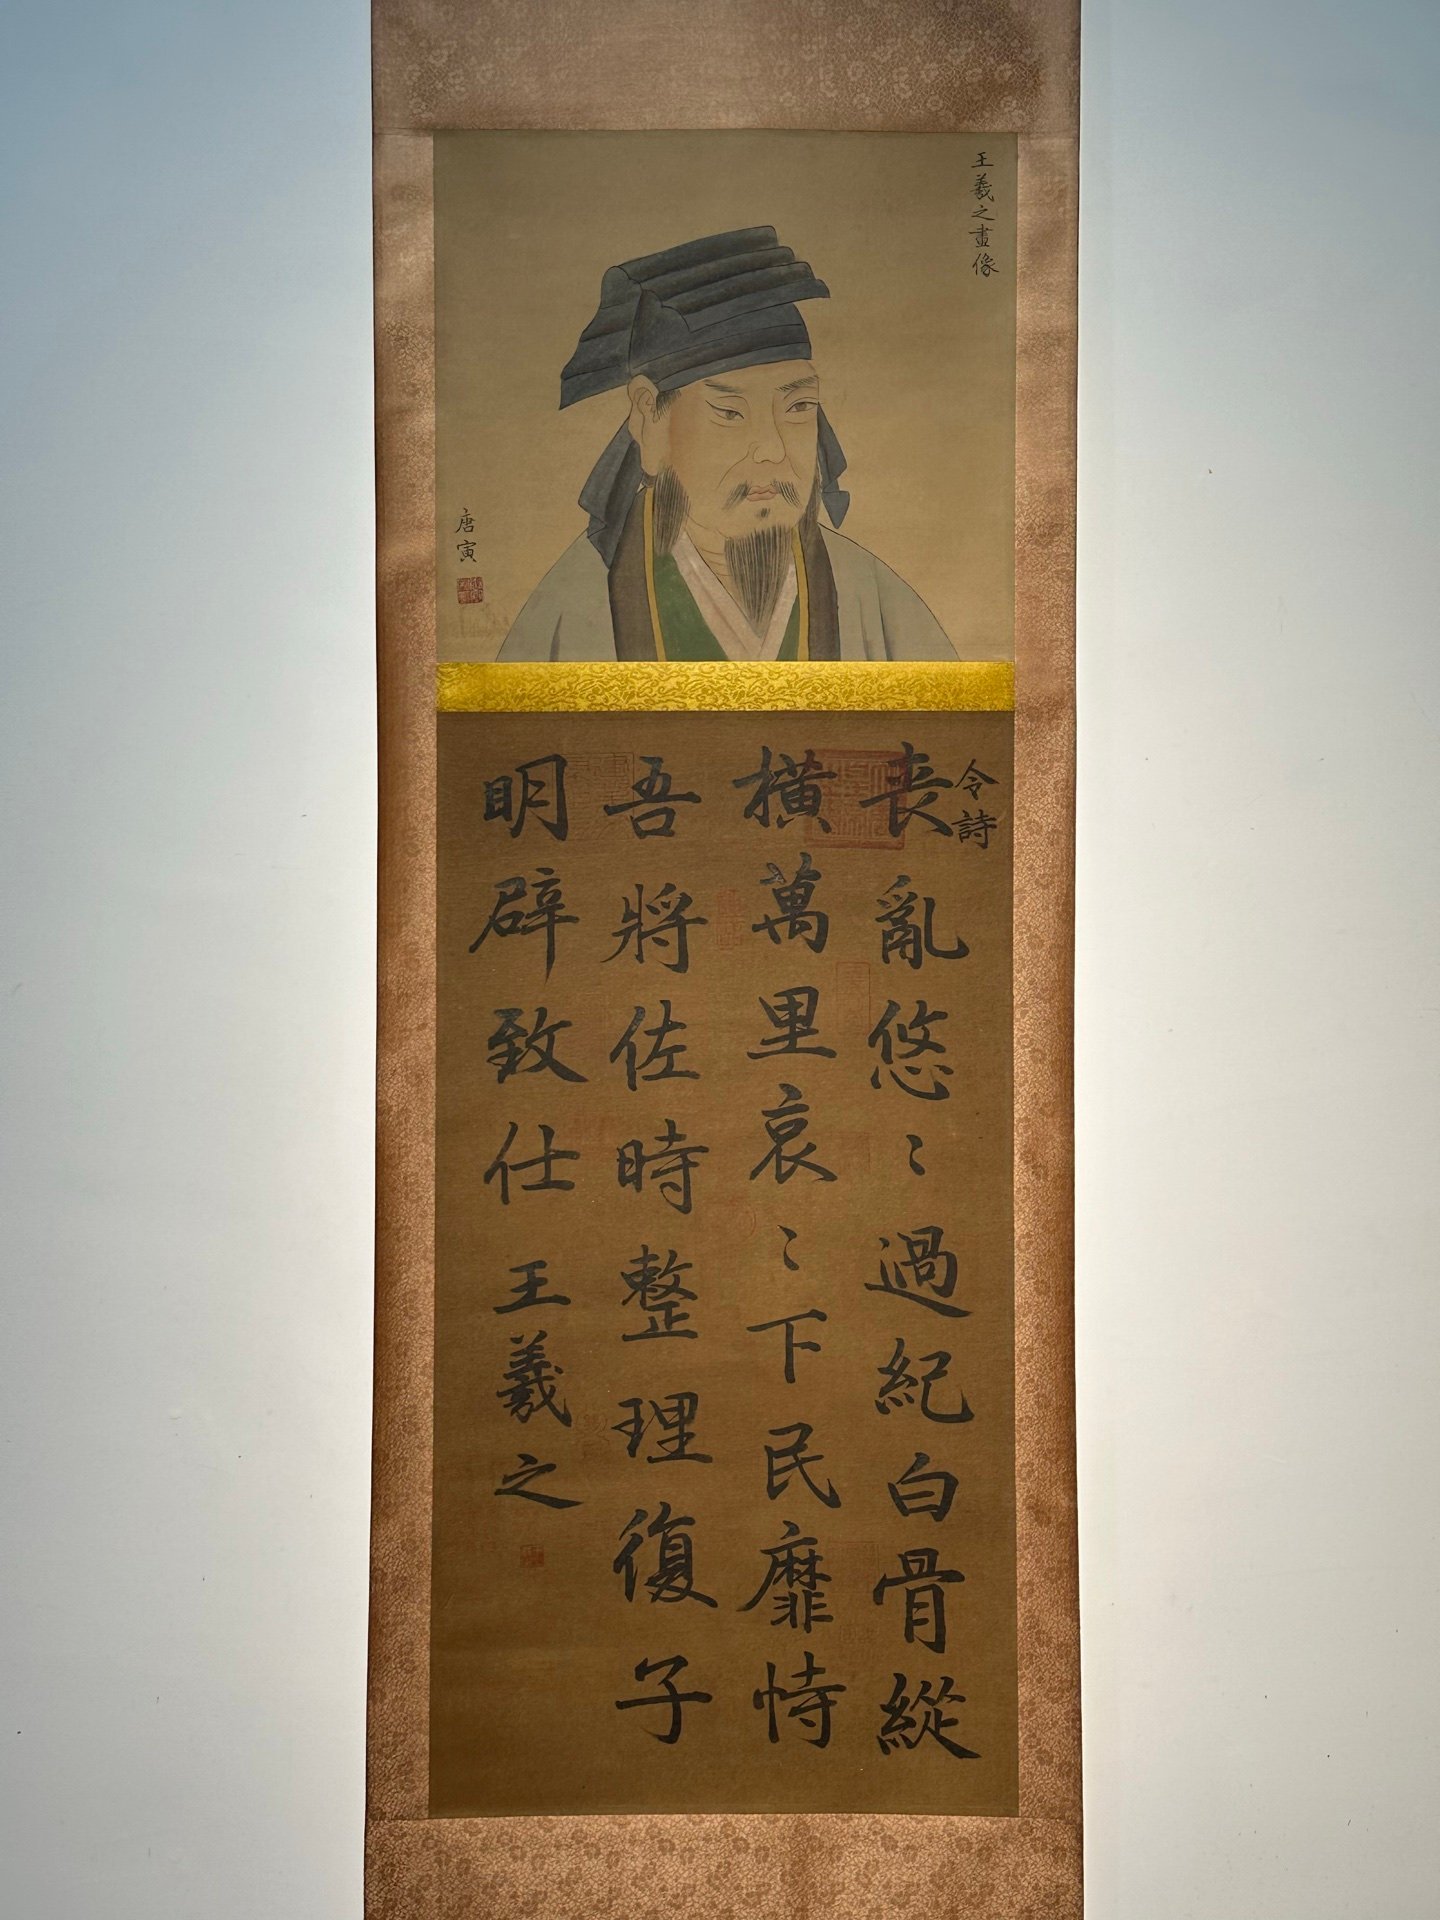 王羲之畫像
唐寅
令詩
喪亂悠〻過紀白骨縱
橫萬里哀〻下民靡恃
吾將佐時整理復子
明辟致仕 王羲之